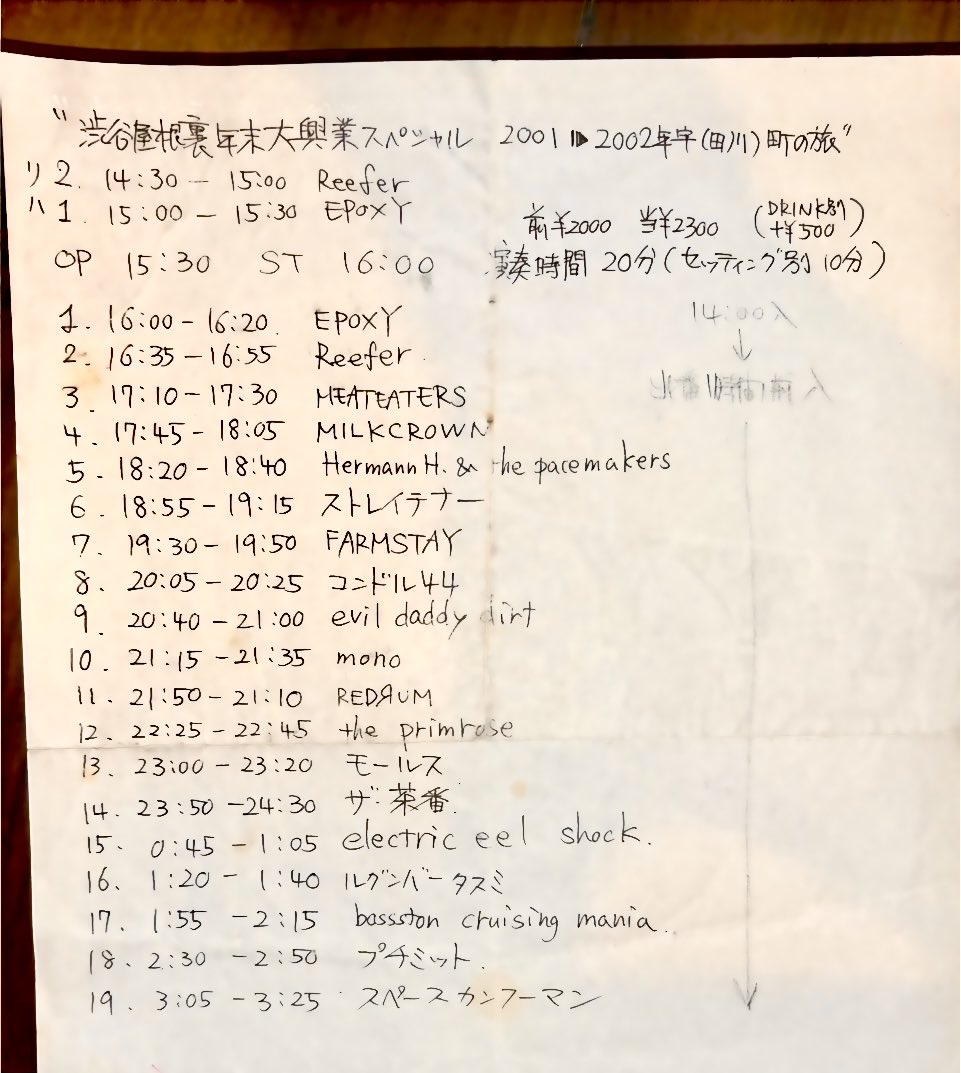 "渋谷屋根裏年末大興業スペシャル 2001 ▶ 2002年宇(田川)町の旅"
リ 2. 14:30 - 15:00 Reefer
ハ 1. 15:00 - 15:30 EPOXY
前¥2000 当¥2300 (DRINK別 +¥500)
OP 15:30 ST 16:00 演奏時間 20分(セッティング別 10分)
1. 16:00 - 16:20 EPOXY
14:00 入
2. 16:35 - 16:55 Reefer
3. 17:10 - 17:30 MEATEATERS
4. 17:45 - 18:05 MILKCROWN
5. 18:20 - 18:40 Hermann H. & the pacemakers
6. 18:55 - 19:15 ストレイテナー
7. 19:30 - 19:50 FARMSTAY
8. 20:05 - 20:25 コンドル44
9. 20:40 - 21:00 evil daddy dirt
10. 21:15 - 21:35 mono
11. 21:50 - 21:10 REDЯUM
12. 22:25 - 22:45 the primrose
13. 23:00 - 23:20 モールス
14. 23:50 - 24:30 ザ・茶番
15. 0:45 - 1:05 electric eel shock.
16. 1:20 - 1:40 ルグンバータスミ
17. 1:55 - 2:15 bossston cruising mania.
18. 2:30 - 2:50 プチミット.
19. 3:05 - 3:25 スペースカンフーマン